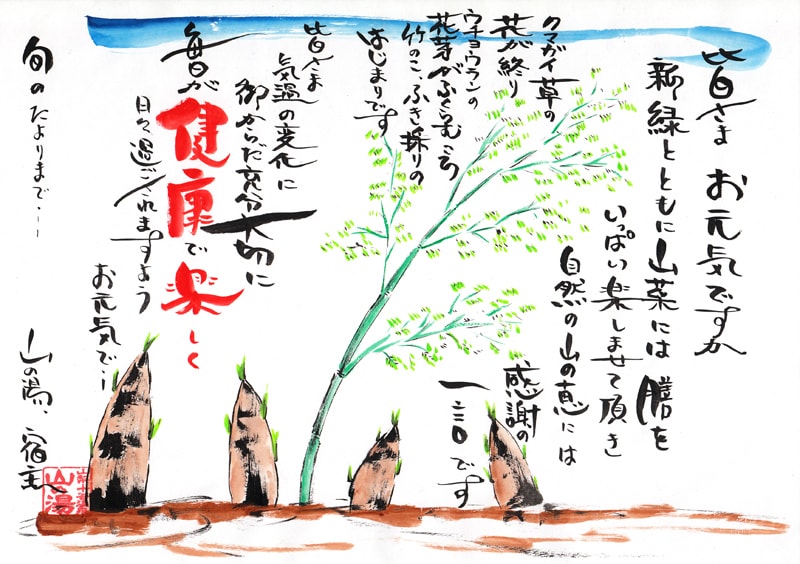 皆さま お元気ですか
新緑とともに山菜には膳を
いっぱい楽しませて頂き
自然の山の恵には
感謝の
一言です
クマガイ草の
花が終り
ウチョウランの
花芽がふくらむころ
竹のこ、ふき採りの
はじまりです
皆さま
気温の変化に
御からだ充分大切に
毎日が
健康で楽しく
日々過ごされますよう
お元気で・・
旬のたよりまで・・・
山の湯、宿主
山湯